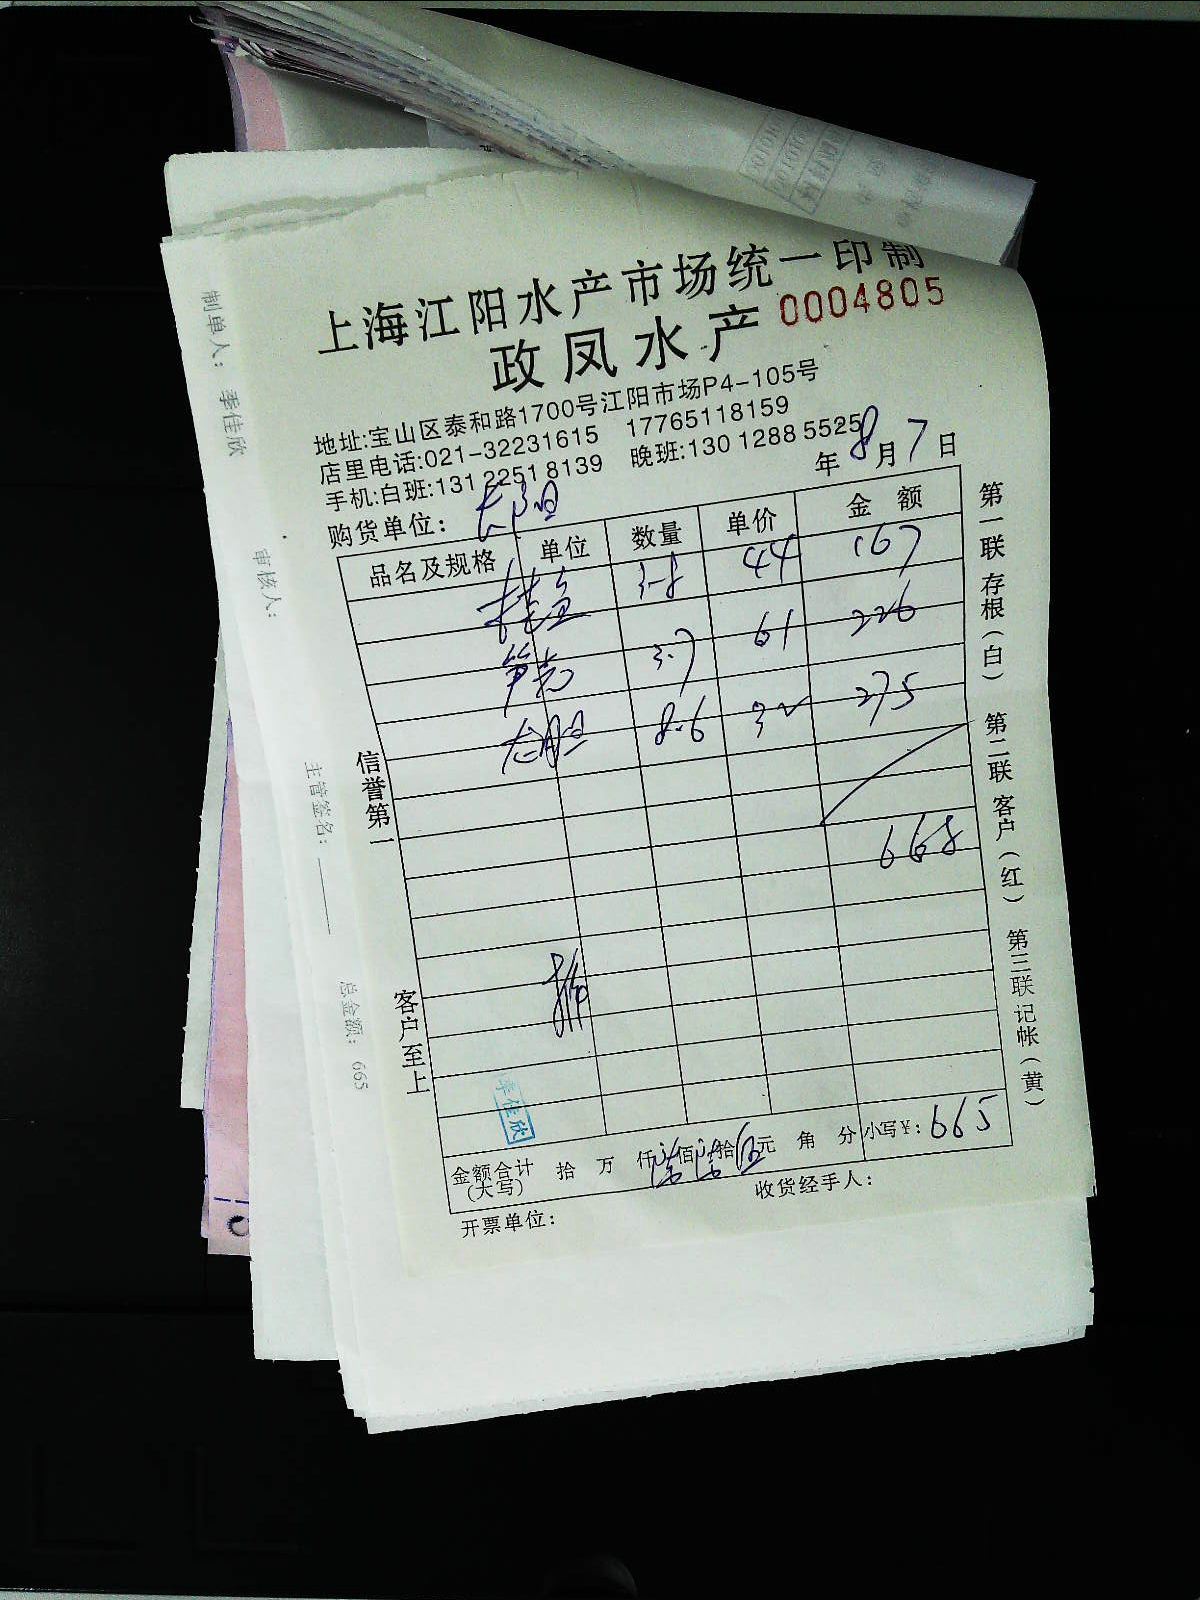 上海江阳水产市场统一印制
政凤水产 0004805
地址:宝山区泰和路1700号江阳市场P4-105号
店里电话:021-32231615 17765118159
手机:白班:131 2251 8139 晚班:130 1288 5525
购货单位:
年 8 月 7 日
品名及规格 单位 数量 单价 金额
桂鱼 3.8 44 167
笋壳 3.7 61 226
龙胆 8.6 32 275
668
金额合计(大写) 拾 万 仟 陆佰 陆拾 伍元 角 分 小写¥: 665
开票单位: 收货经手人:
信誉第一
客户至上
第一联 存根(白) 第二联 客户(红) 第三联 记帐(黄)
李佳欣
制单人: 李佳欣
审核人:
主管签名:
总金额: 665